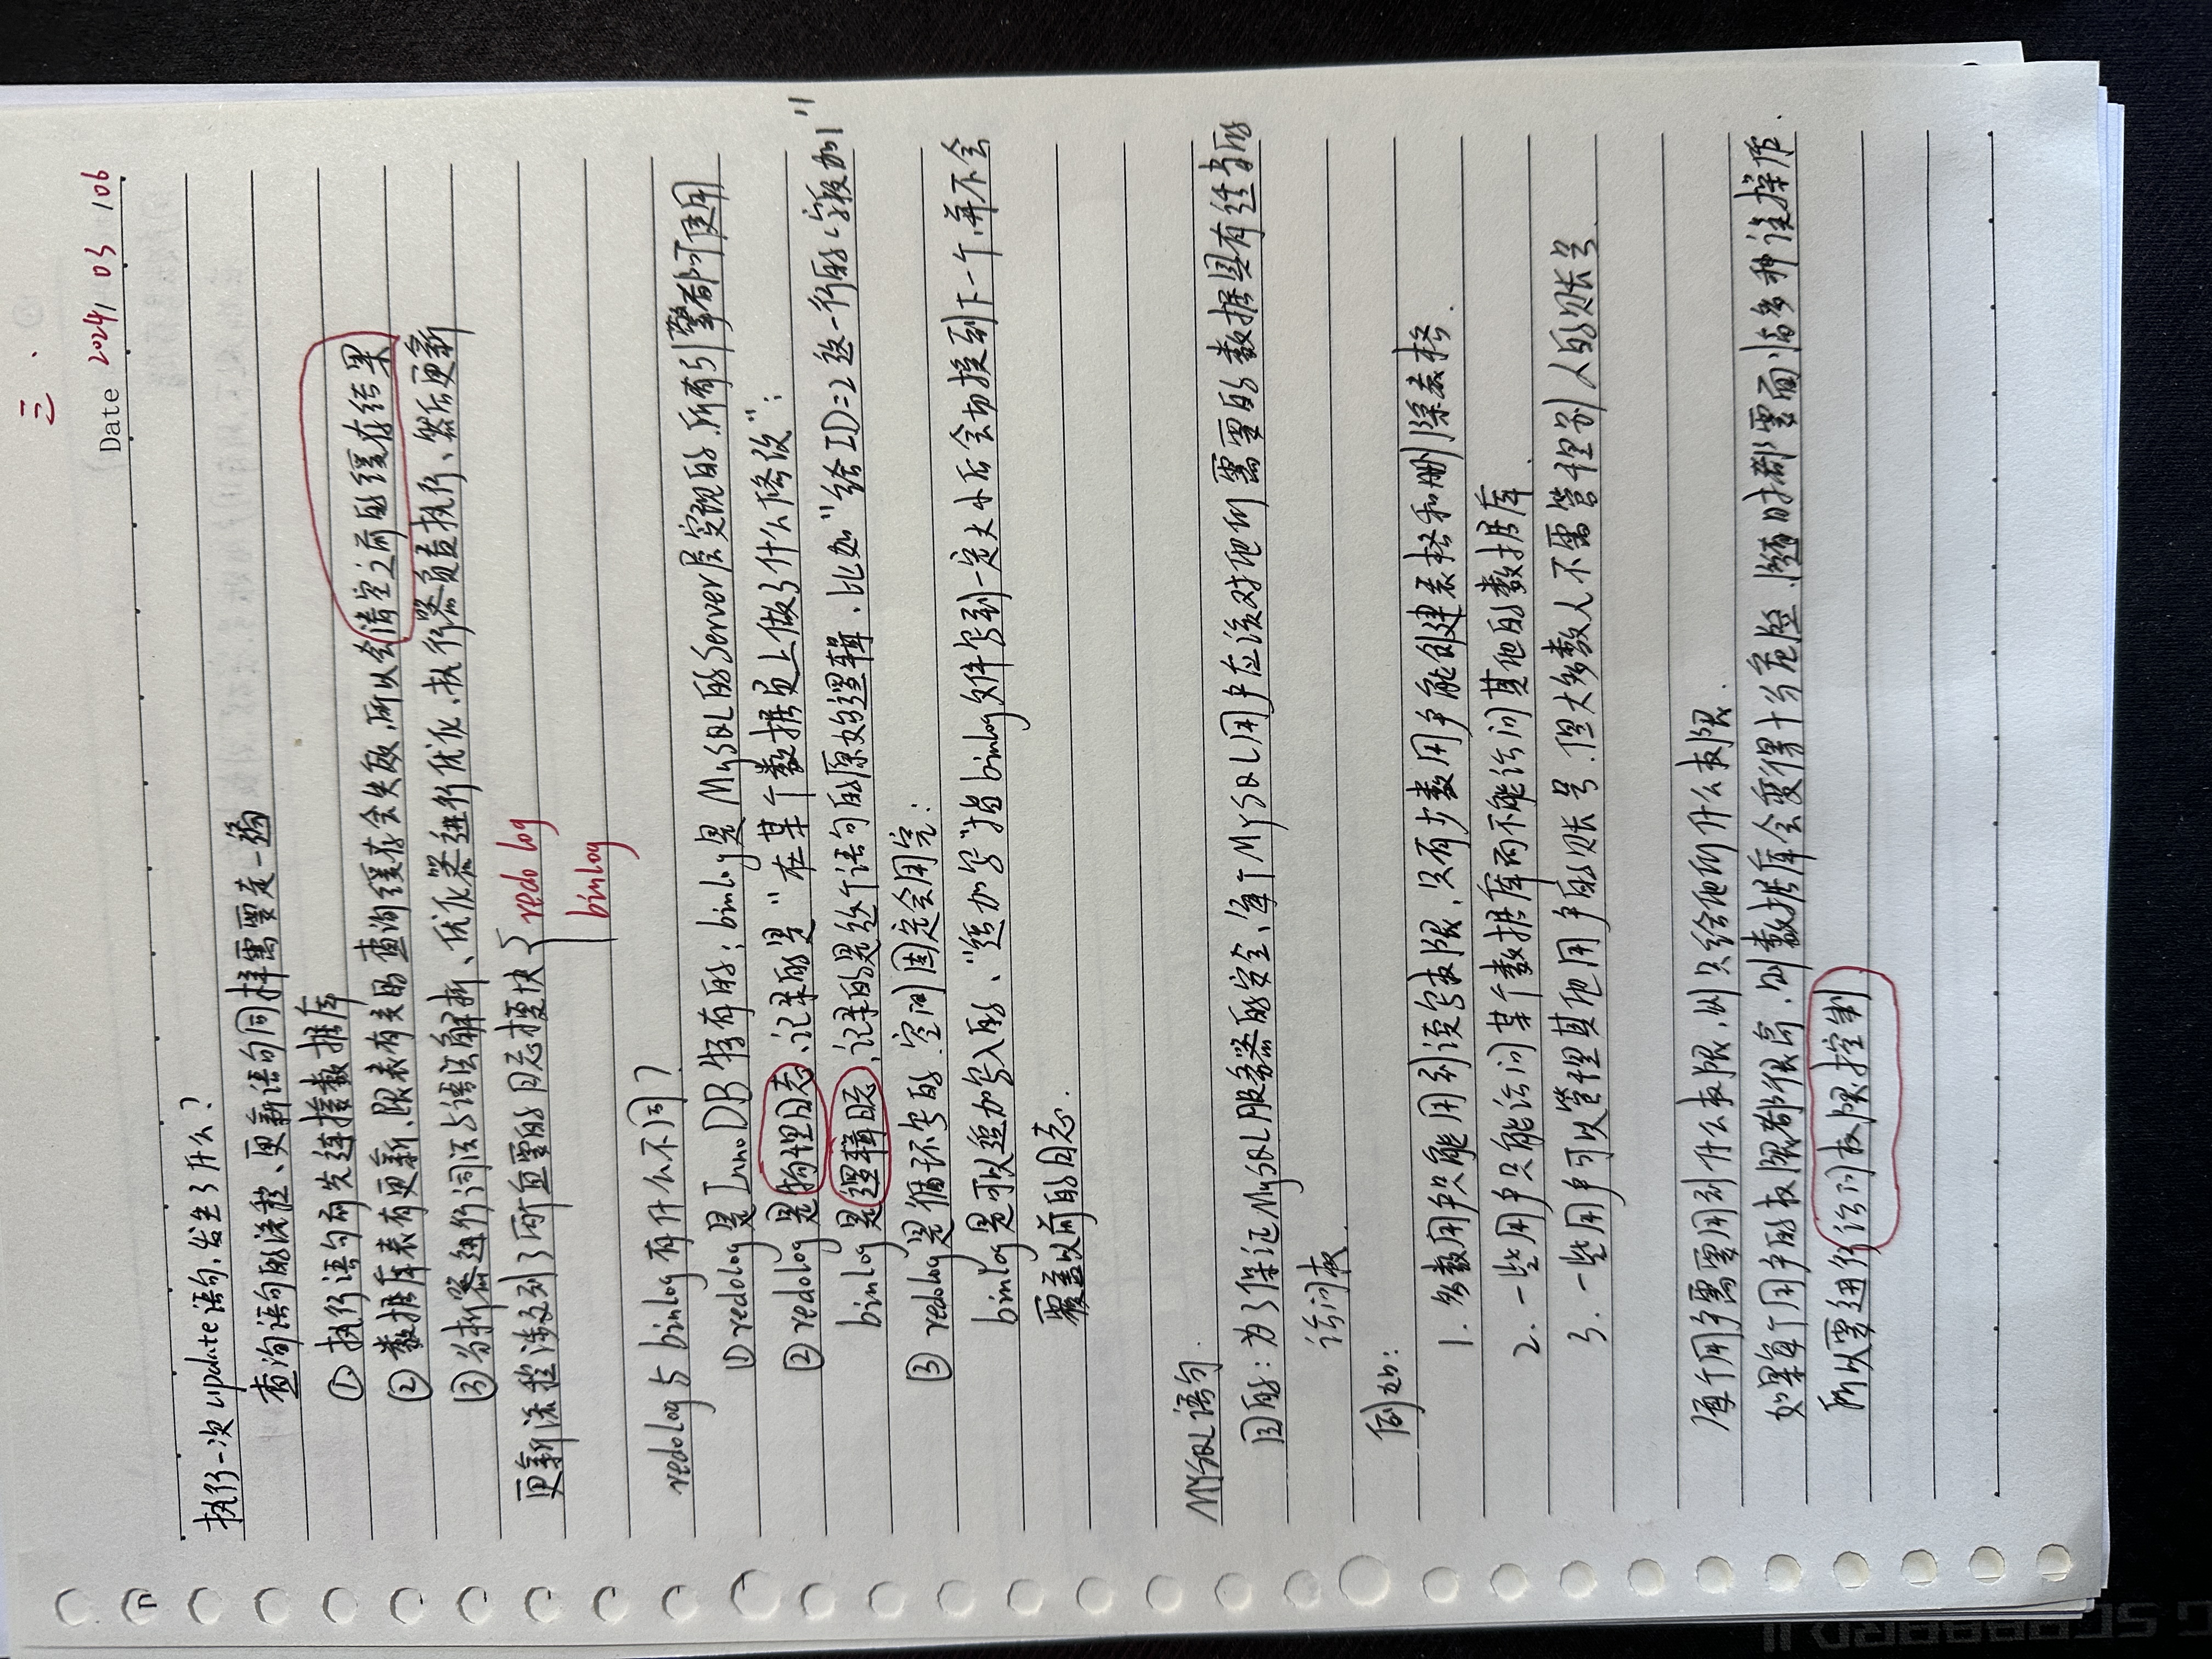 三.
Date 2024/ 03 /06
执行一次update语句,发生了什么?
查询语句的流程、更新语句同样需要走一遍
① 执行语句前先连接数据库
② 数据库表有更新、跟表有关的查询缓存会失效,所以会清空之前的缓存结果
③ 分析器进行词法与语法解析、优化器进行优化、执行器负责执行、然后更新
更新流程涉及到了两个重要的日志模块 { redo log
binlog
redolog与binlog有什么不同?
① redolog是InnoDB特有的;binlog是MySQL的Server层实现的,所有引擎都可使用
② redolog是物理日志、记录的是"在某个数据页上做了什么修改";
binlog是逻辑日志,记录的是这个语句的原始逻辑、比如"给ID=2这一行的c字段加1"
③ redolog是循环写的、空间固定会用完;
binlog是可以追加写入的、"追加写"指binlog文件写到一定大小后会切换到下一个,并不会
覆盖以前的日志.
MYSQL语句.
目的:为了保证MySQL服务器的安全、每个MySQL用户应该对他们需要的数据具有适当的
访问权.
例如:
1. 多数用户只能用到读写权限,只有少数用户能创建表格和删除表格.
2. 一些用户只能访问某个数据库而不能访问其他的数据库.
3. 一些用户可以管理其他用户的账号,但大多数人不需管理别人的账号.
每个用户需要用到什么权限,则只给他们什么权限.
如果每个用户的权限都很高,则数据库会变得十分危险,随时都要面临多种误操作.
所以要进行访问权限控制